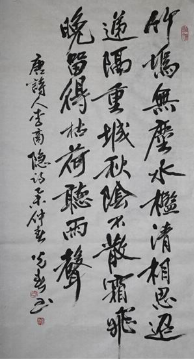 竹塢無塵水檻清相思迢
遞隔重城秋陰不散霜飛
晚留得枯荷聽雨聲
唐詩人李商隱詩 仲春 書